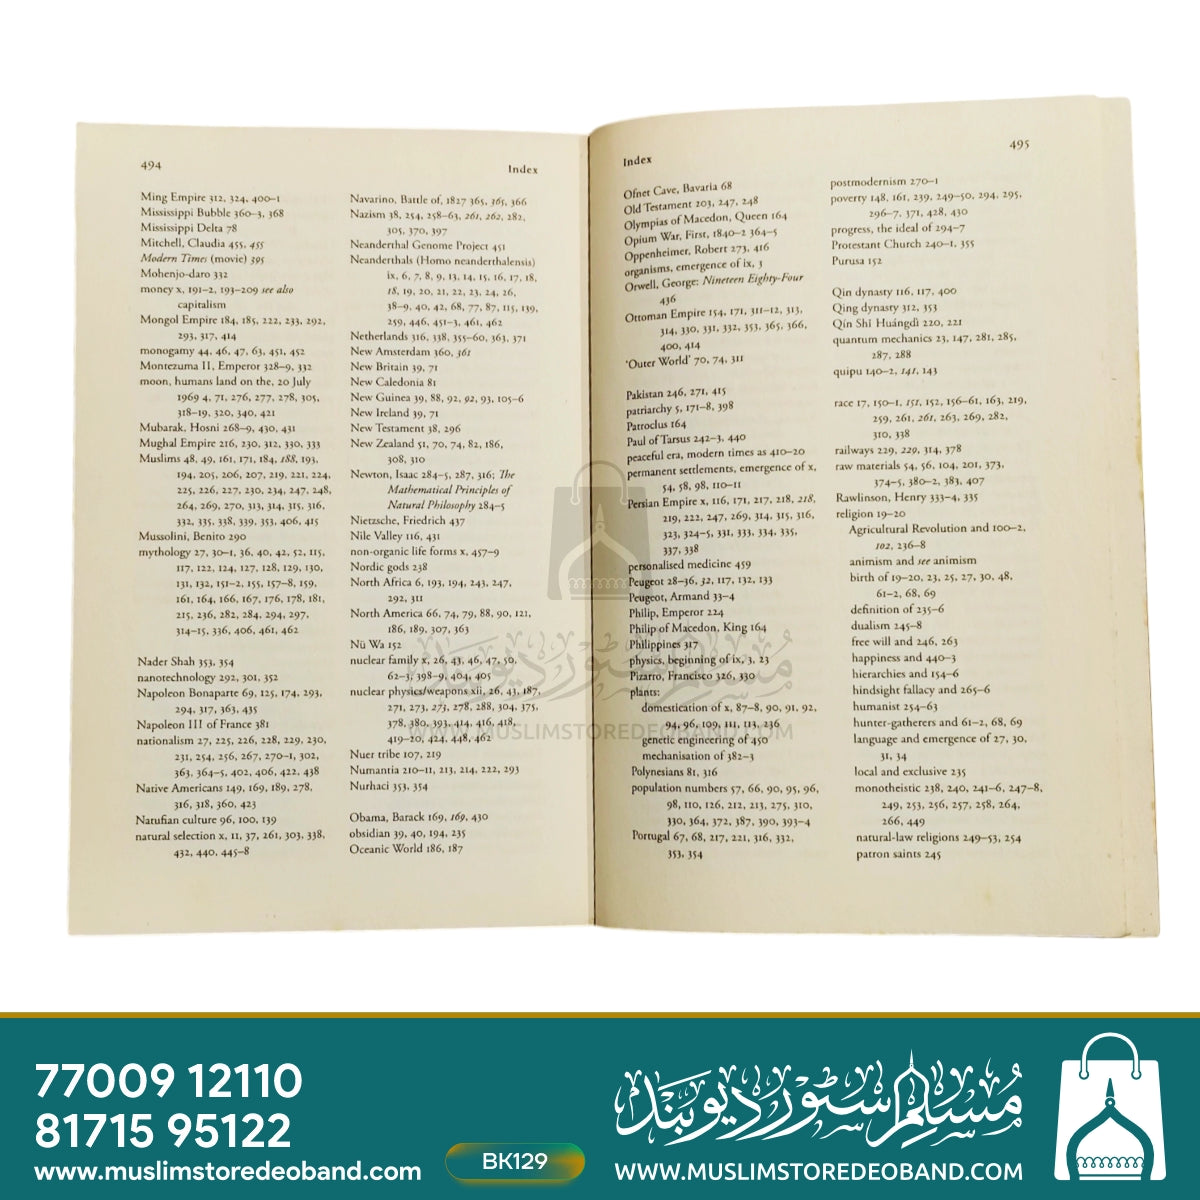 494
Index
Ming Empire 312, 324, 400–1
Mississippi Bubble 360–3, 368
Mississippi Delta 78
Mitchell, Claudia 455, 455
Modern Times (movie) 395
Mohenjo-daro 332
money x, 191–2, 193–209 see also
capitalism
Mongol Empire 184, 185, 222, 233, 292,
293, 317, 414
monogamy 44, 46, 47, 63, 451, 452
Montezuma II, Emperor 328–9, 332
moon, humans land on the, 20 July
1969 4, 71, 276, 277, 278, 305,
318–19, 320, 340, 421
Mubarak, Hosni 268–9, 430, 431
Mughal Empire 216, 230, 312, 330, 333
Muslims 48, 49, 161, 171, 184, 188, 193,
194, 205, 206, 207, 219, 221, 224,
225, 226, 227, 230, 234, 247, 248,
264, 269, 270, 313, 314, 315, 316,
332, 335, 338, 339, 353, 406, 415
Mussolini, Benito 290
mythology 27, 30–1, 36, 40, 42, 52, 115,
117, 122, 124, 127, 128, 129, 130,
131, 132, 151–2, 155, 157–8, 159,
161, 164, 166, 167, 176, 178, 181,
215, 236, 282, 284, 294, 297,
314–15, 336, 406, 461, 462
Nader Shah 353, 354
nanotechnology 292, 301, 352
Napoleon Bonaparte 69, 125, 174, 293,
294, 317, 363, 435
Napoleon III of France 381
nationalism 27, 225, 226, 228, 229, 230,
231, 254, 256, 267, 270–1, 302,
363, 364–5, 402, 406, 422, 438
Native Americans 149, 169, 189, 278,
316, 318, 360, 423
Natufian culture 96, 100, 139
natural selection x, 11, 37, 261, 303, 338,
432, 440, 445–8
Navarino, Battle of, 1827 365, 365, 366
Nazism 38, 254, 258–63, 261, 262, 282,
305, 370, 397
Neanderthal Genome Project 451
Neanderthals (Homo neanderthalensis)
ix, 6, 7, 8, 9, 13, 14, 15, 16, 17, 18,
18, 19, 20, 21, 22, 23, 24, 26,
38–9, 40, 42, 68, 77, 87, 115, 139,
259, 446, 451–3, 461, 462
Netherlands 316, 338, 355–60, 363, 371
New Amsterdam 360, 361
New Britain 39, 71
New Caledonia 81
New Guinea 39, 88, 92, 92, 93, 105–6
New Ireland 39, 71
New Testament 38, 296
New Zealand 51, 70, 74, 82, 186,
308, 310
Newton, Isaac 284–5, 287, 316; The
Mathematical Principles of
Natural Philosophy 284–5
Nietzsche, Friedrich 437
Nile Valley 116, 431
non-organic life forms x, 457–9
Nordic gods 238
North Africa 6, 193, 194, 243, 247,
292, 311
North America 66, 74, 79, 88, 90, 121,
186, 189, 307, 363
Nü Wa 152
nuclear family x, 26, 43, 46, 47, 50,
62–3, 398–9, 404, 405
nuclear physics/weapons xii, 26, 43, 187,
271, 273, 273, 278, 288, 304, 375,
378, 380, 393, 414, 416, 418,
419–20, 424, 448, 462
Nuer tribe 107, 219
Numantia 210–11, 213, 214, 222, 293
Nurhaci 353, 354
Obama, Barack 169, 169, 430
obsidian 39, 40, 194, 235
Oceanic World 186, 187
Index
495
Ofnet Cave, Bavaria 68
Old Testament 203, 247, 248
Olympias of Macedon, Queen 164
Opium War, First, 1840–2 364–5
Oppenheimer, Robert 273, 416
organisms, emergence of ix, 3
Orwell, George: Nineteen Eighty-Four
436
Ottoman Empire 154, 171, 311–12, 313,
314, 330, 331, 332, 353, 365, 366,
400, 414
'Outer World' 70, 74, 311
Pakistan 246, 271, 415
patriarchy 5, 171–8, 398
Patroclus 164
Paul of Tarsus 242–3, 440
peaceful era, modern times as 410–20
permanent settlements, emergence of x,
54, 58, 98, 110–11
Persian Empire x, 116, 171, 217, 218, 218,
219, 222, 247, 269, 314, 315, 316,
323, 324–5, 331, 333, 334, 335,
337, 338
personalised medicine 459
Peugeot 28–36, 32, 117, 132, 133
Peugeot, Armand 33–4
Philip, Emperor 224
Philip of Macedon, King 164
Philippines 317
physics, beginning of ix, 3, 23
Pizarro, Francisco 326, 330
plants:
domestication of x, 87–8, 90, 91, 92,
94, 96, 109, 111, 113, 236
genetic engineering of 450
mechanisation of 382–3
Polynesians 81, 316
population numbers 57, 66, 90, 95, 96,
98, 110, 126, 212, 213, 275, 310,
330, 364, 372, 387, 390, 393–4
Portugal 67, 68, 217, 221, 316, 332,
353, 354
postmodernism 270–1
poverty 148, 161, 239, 249–50, 294, 295,
296–7, 371, 428, 430
progress, the ideal of 294–7
Protestant Church 240–1, 355
Purusa 152
Qin dynasty 116, 117, 400
Qing dynasty 312, 353
Qín Shǐ Huángdì 220, 221
quantum mechanics 23, 147, 281, 285,
287, 288
quipu 140–2, 141, 143
race 17, 150–1, 151, 152, 156–61, 163, 219,
259, 261, 261, 263, 269, 282,
310, 338
railways 229, 229, 314, 378
raw materials 54, 56, 104, 201, 373,
374–5, 380–2, 383, 407
Rawlinson, Henry 333–4, 335
religion 19–20
Agricultural Revolution and 100–2,
102, 236–8
animism and see animism
birth of 19–20, 23, 25, 27, 30, 48,
61–2, 68, 69
definition of 235–6
dualism 245–8
free will and 246, 263
happiness and 440–3
hierarchies and 154–6
hindsight fallacy and 265–6
humanist 254–63
hunter-gatherers and 61–2, 68, 69
language and emergence of 27, 30,
31, 34
local and exclusive 235
monotheistic 238, 240, 241–6, 247–8,
249, 253, 256, 257, 258, 264,
266, 449
natural-law religions 249–53, 254
patron saints 245
مسلم سٹور دیوبند
WWW.MUSLIMSTOREDEOBAND.COM
77009 12110
81715 95122
www.muslimstoredeoband.com
BK129
مسلم سٹور دیوبند
WWW.MUSLIMSTOREDEOBAND.COM